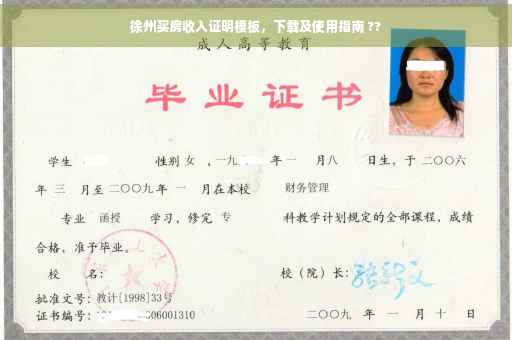 徐州买房收入证明模板，下载及使用指南 ??
成人高等教育
毕业证书
学生 性别 女 ，一九 年 一 月八 日生，于 二〇〇六
年 三 月至 二〇〇九 年 一 月在本校 财务管理
专业 函授 学习，修完 专 科教学计划规定的全部课程，成绩
合格，准予毕业。
校 名： 校（院）长：
批准文号：教计[1998]33号
证书编号： 06001310 二〇〇九 年 一 月 十 日